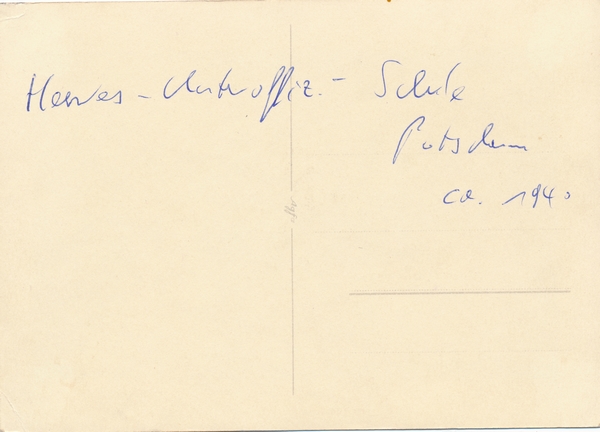 Heeres-Unteroffiz.- Schule
Potsdam
ca. 1940